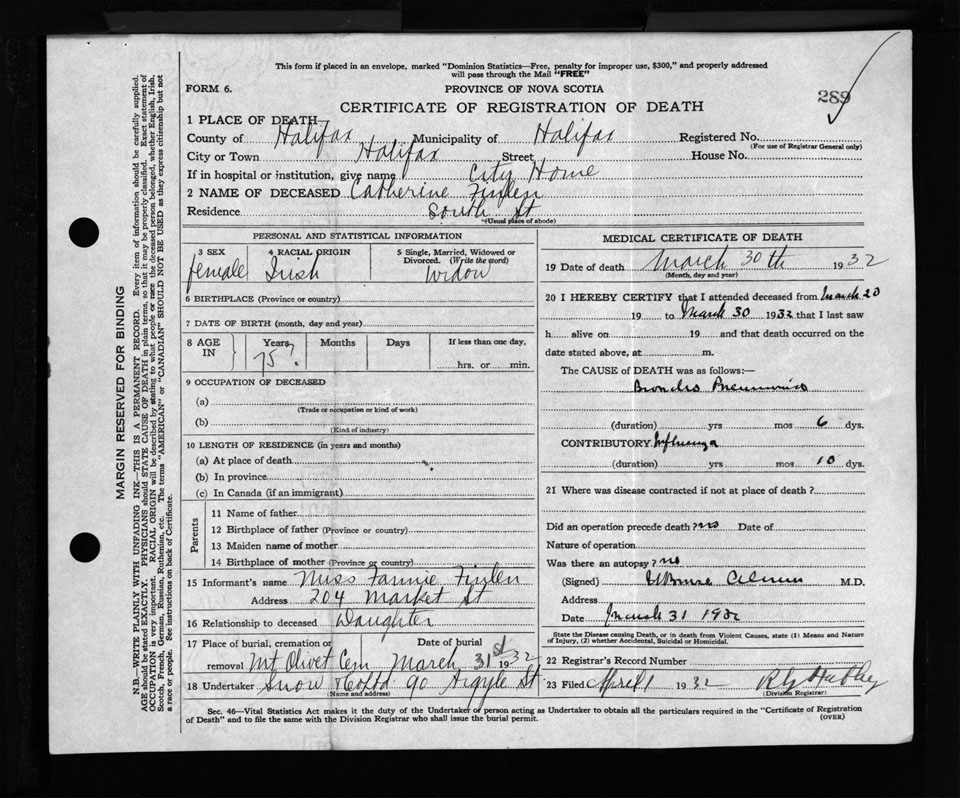 This form if placed in an envelope, marked "Dominion Statistics—Free, penalty for improper use, $300," and properly addressed
will pass through the Mail "FREE"
FORM 6. PROVINCE OF NOVA SCOTIA
289
CERTIFICATE OF REGISTRATION OF DEATH
1 PLACE OF DEATH—
County of Halifax Municipality of Halifax Registered No.
(For use of Registrar General only)
City or Town Halifax Street House No.
If in hospital or institution, give name City Home
2 NAME OF DECEASED Catherine Finlen
Residence South St
(Usual place of abode)
PERSONAL AND STATISTICAL INFORMATION
3 SEX 4 RACIAL ORIGIN 5 Single, Married, Widowed or
Divorced. (Write the word)
female Irish Widow
6 BIRTHPLACE (Province or country)
7 DATE OF BIRTH (month, day and year)
8 AGE IN Years Months Days If less than one day,
75? hrs. or min.
9 OCCUPATION OF DECEASED
(a)
(Trade or occupation or kind of work)
(b)
(Kind of industry)
10 LENGTH OF RESIDENCE (in years and months)
(a) At place of death
(b) In province
(c) In Canada (if an immigrant)
Parents
11 Name of father
12 Birthplace of father (Province or country)
13 Maiden name of mother
14 Birthplace of mother (Province or country)
15 Informant's name Miss Fannie Finlen
Address 204 Market St
16 Relationship to deceased Daughter
17 Place of burial, cremation or Date of burial
removal Mt Olivet Cem March 31st 1932
18 Undertaker Snow & Co Ltd 90 Argyle St
(Name and address)
MEDICAL CERTIFICATE OF DEATH
19 Date of death March 30th 1932
(Month, day and year)
20 I HEREBY CERTIFY that I attended deceased from March 20
19 to March 30 1932 that I last saw
h alive on 19 and that death occurred on the
date stated above, at m.
The CAUSE of DEATH was as follows:—
Broncho Pneumonia
(duration) yrs mos 6 dys.
CONTRIBUTORY Influenza
(duration) yrs mos 10 dys.
21 Where was disease contracted if not at place of death?
Did an operation precede death? no Date of
Nature of operation
Was there an autopsy? no
(Signed) M.D.
Address
Date March 31 1932
State the Disease causing Death, or in death from Violent Causes, state (1) Means and Nature
of Injury, (2) whether Accidental, Suicidal or Homicidal.
22 Registrar's Record Number
23 Filed April 1 1932
(Division Registrar)
Sec. 46—Vital Statistics Act makes it the duty of the Undertaker or person acting as Undertaker to obtain all the particulars required in the "Certificate of Registration
of Death" and to file the same with the Division Registrar who shall issue the burial permit. (OVER)
MARGIN RESERVED FOR BINDING
N.B.—WRITE PLAINLY WITH UNFADING INK—THIS IS A PERMANENT RECORD. Every item of information should be carefully supplied.
AGE should be stated EXACTLY. PHYSICIANS should STATE CAUSE OF DEATH in plain terms, so that it may be properly classified. Exact statement of
OCCUPATION is very important. RACIAL ORIGIN will be described by stating to what people or race the deceased person belonged, whether English, Irish,
Scotch, French, German, Russian, Ruthenian, etc. The terms "AMERICAN" or "CANADIAN" SHOULD NOT BE USED as they express citizenship but not
a race or people. See instructions on back of Certificate.